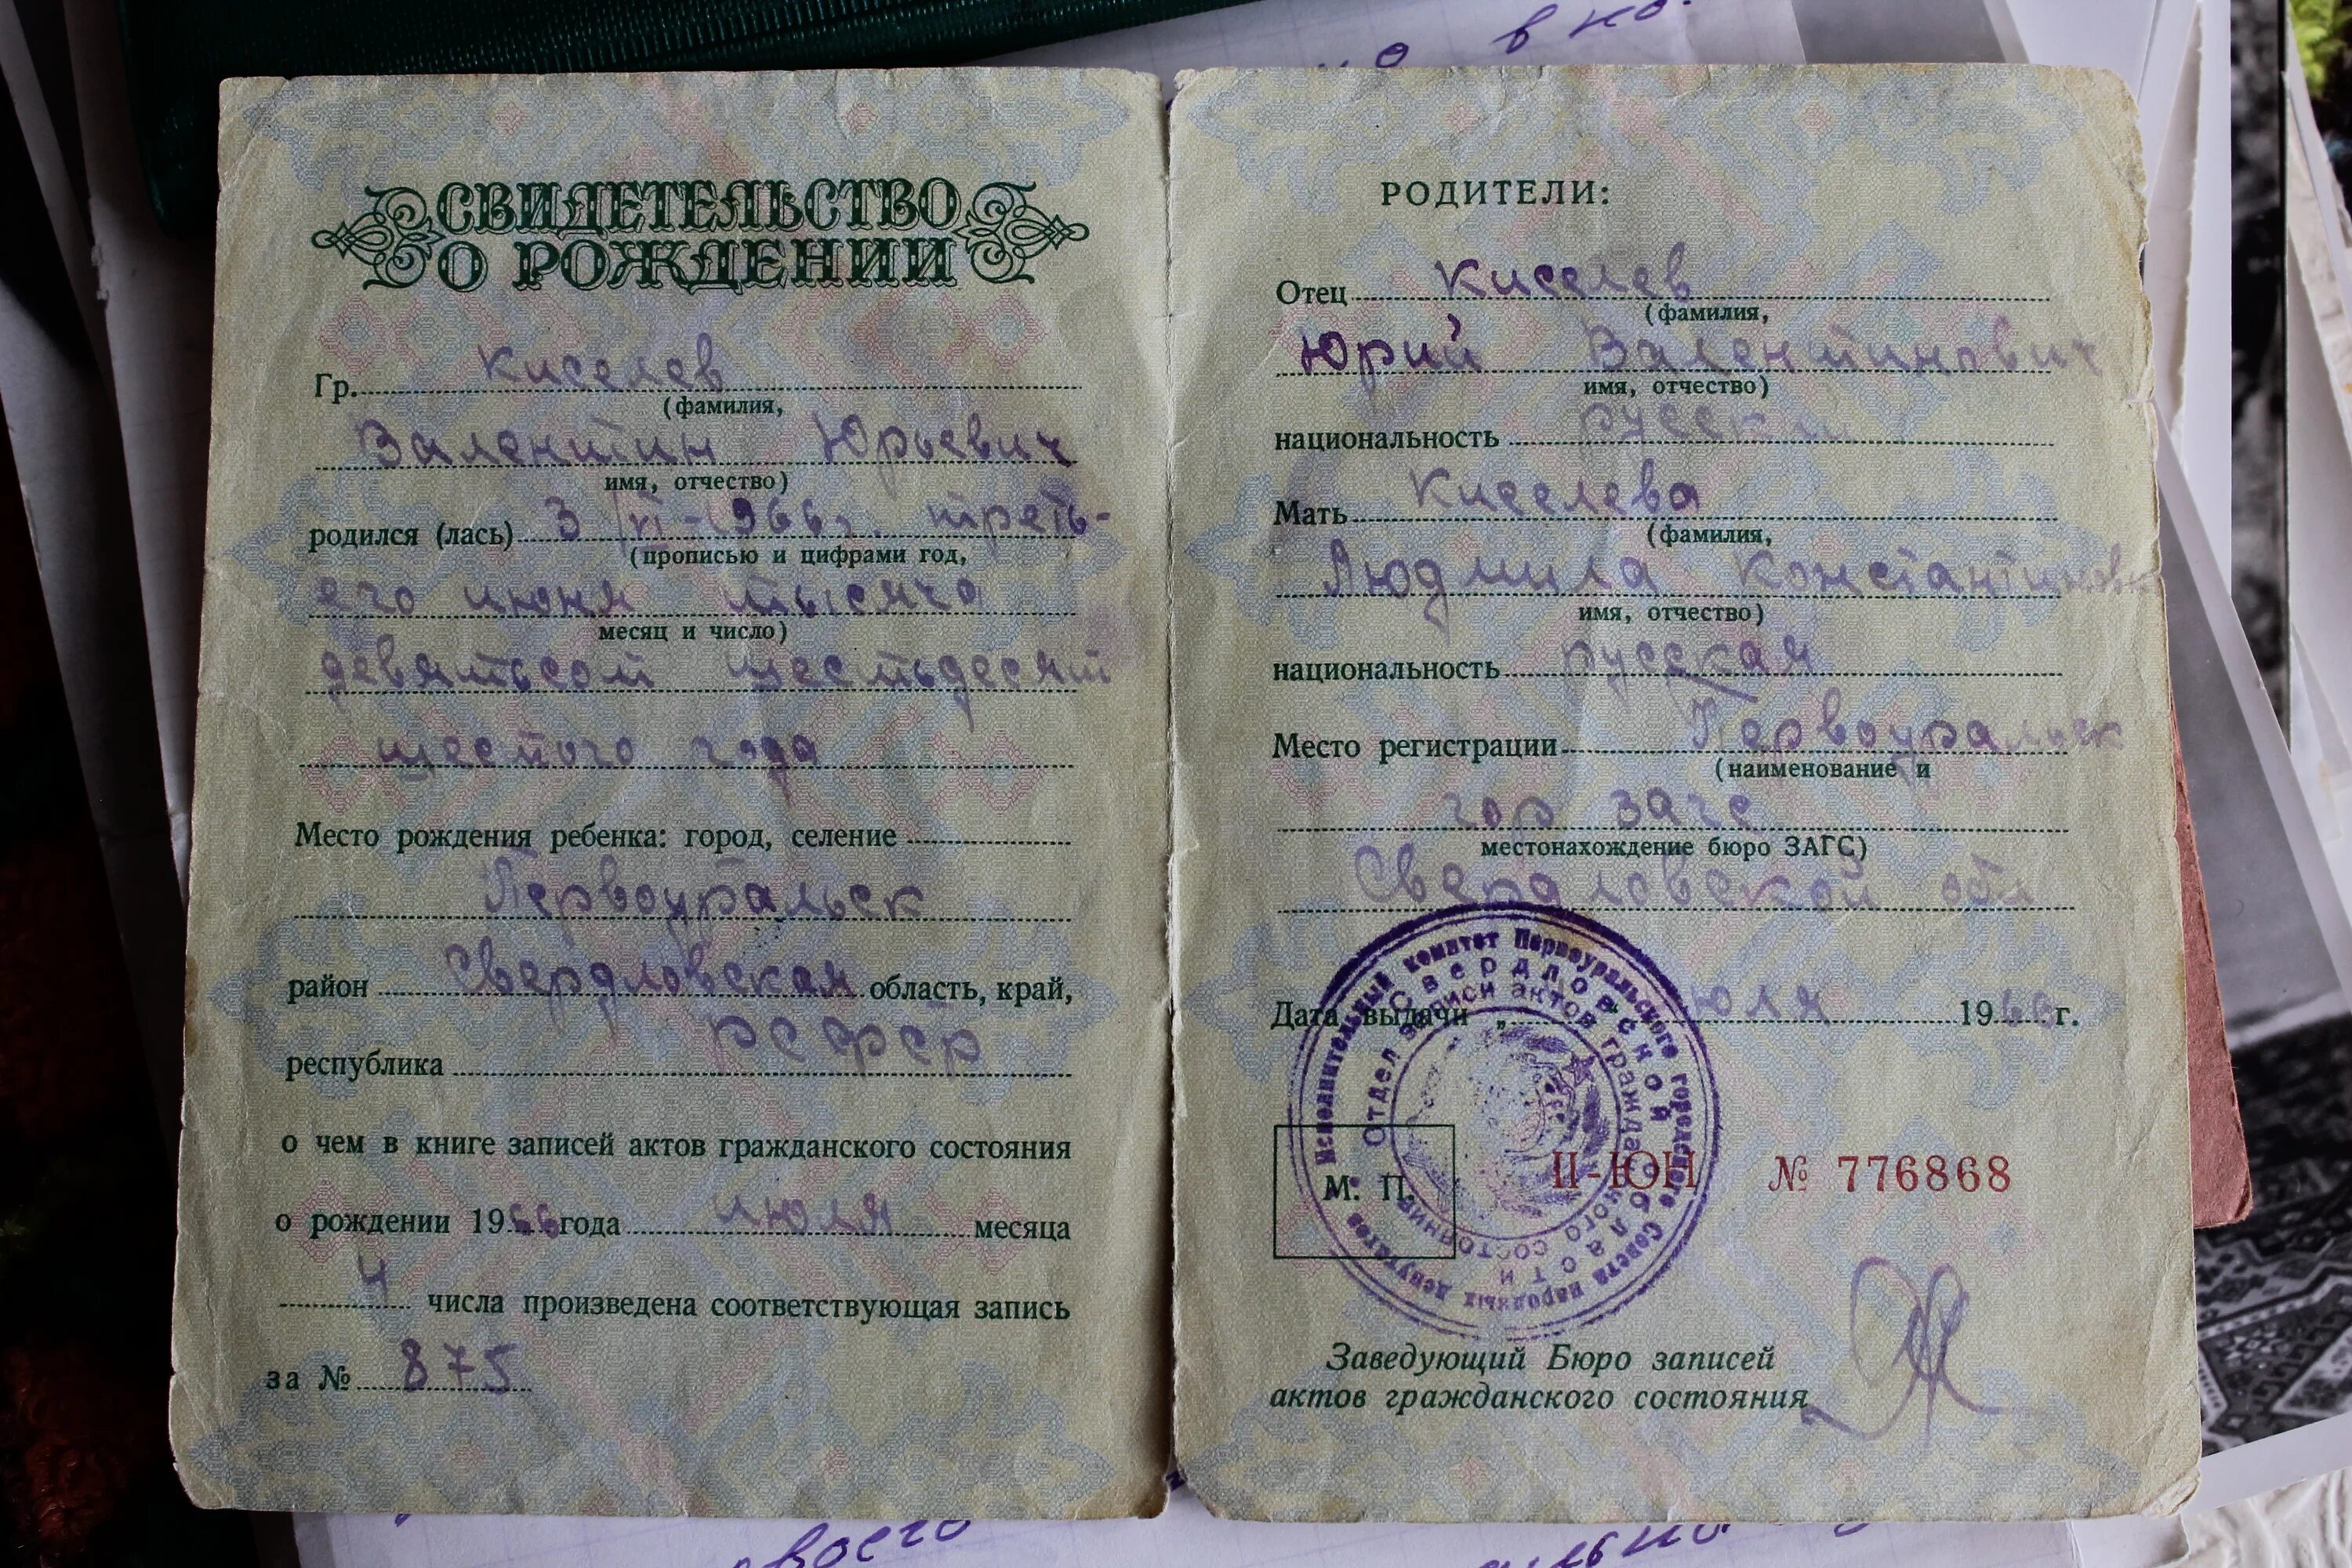 в но
СВИДЕТЕЛЬСТВО
О РОЖДЕНИИ
Гр. Киселев
(фамилия,
Валентин Юрьевич
имя, отчество)
родился (лась) 3/VI-1966г. треть-
(прописью и цифрами год,
его июня тысяча
месяц и число)
девятьсот шестьдесят
шестого года
Место рождения ребенка: город, селение
Первоуральск
район Свердловская область, край,
республика РСФСР
о чем в книге записей актов гражданского состояния
о рождении 1966 года июля месяца
4 числа произведена соответствующая запись
за № 875
РОДИТЕЛИ:
Отец Киселев
(фамилия,
Юрий Валентинович
имя, отчество)
национальность русский
Мать Киселева
(фамилия,
Людмила Константиновна
имя, отчество)
национальность русская
Место регистрации Первоуральск
(наименование и
гор загс
местонахождение бюро ЗАГС)
Свердловской обл
Дата выдачи „ июля 1966 г.
Исполнительный комитет Первоуральского городского Совета народных депутатов
Свердловской области
Отдел записи актов гражданского состояния
М. П.
II-ЮН № 776868
Заведующий Бюро записей
актов гражданского состояния